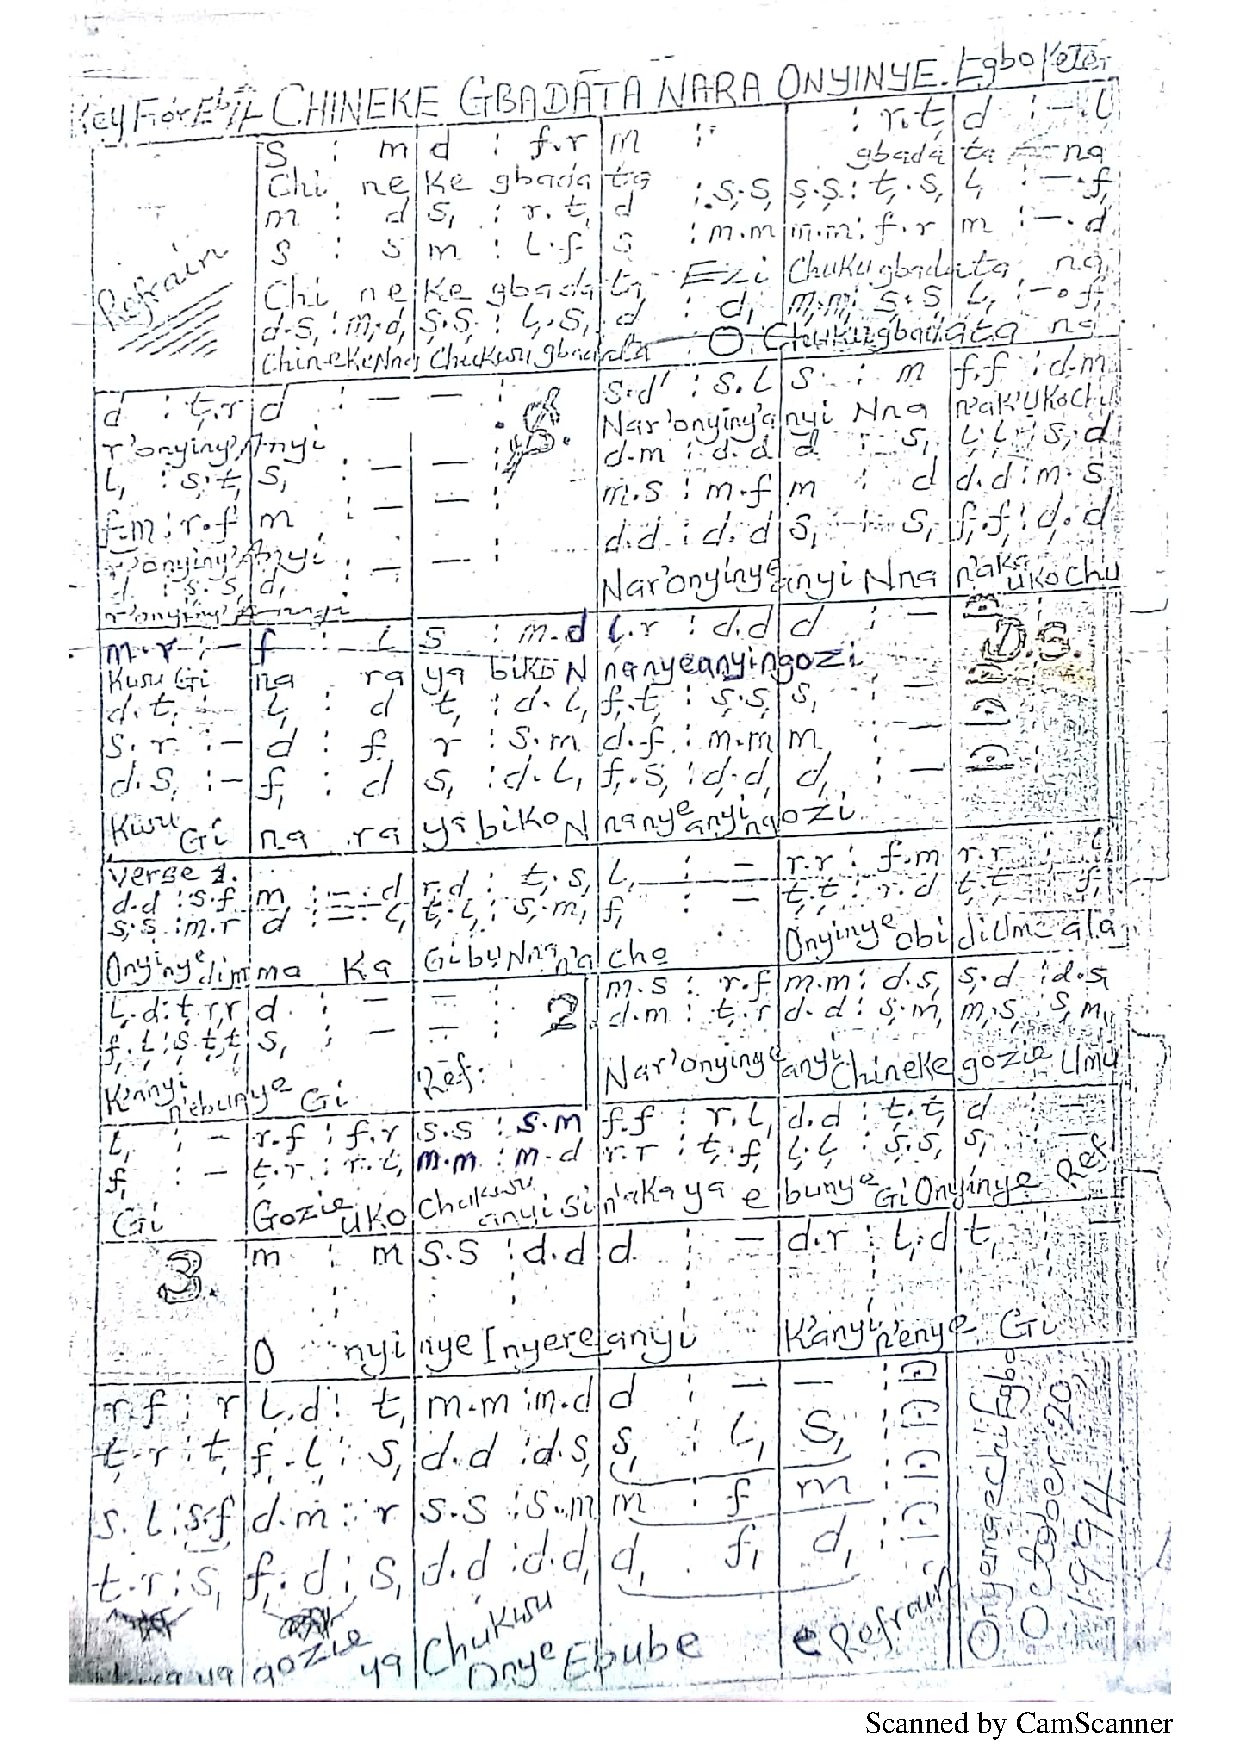 Key F or Eb 4/4 CHINEKE GBADATA NARA ONYINYE. Egbo Peter
S : m d : f.r m : : r.t, d : - . l,
Chi ne ke gbada ta gbada ta na
m : d s, : r.t, d : s,.s, s,.s, : t,.s, l, : - . f,
s : s m : l.f s : m.m m.m : f.r m : - . d
Chi ne ke gbada ta Ezi Chukugbadata na
d.s, : m,.d, s,.s, : l,.s, d : d, m,.m, : s,.s, l, : - . f,
Refrain
ChinekeNna Chukwu gbadata O Chukugbadata na
d : t,.r d : - - : s.d' : s.l s : m f.f : d.m
r'onyiny'Anyi Nar'onyiny'anyi Nna n'akukochu
l, : s,.t, s, : - - : d.m : d.d d : s, l,.l, : s,.d
f.m : r.f m : - - : m.s : m.f m : d d.d : m.s
r'onyiny'Anyi d.d : d.d s, : - s, f,.f, : d.d
: s,.s, d, : - - :
r'onyiny' Nar'onyinye anyi Nna n'aka ukochu
m.r : - f : l s : m.d l,.r : d.d d : - D.S.
Kwu Gi na ra ya biko N nanyeanyingozi
d.t, : - l, : d t, : d.l, f,.t, : s,.s, s, : -
s.r : - d : f r : s.m d.f : m.m m : -
d.s, : - f, : d s, : d.l, f,.s, : d.d, d, : -
Kwu Gi na ra ya biko N nanye anyi ngozi
Verse 1.
d.d : s.f m : - . d r.d : t,.s, l, : - r.r : f.m r.r : l,
s,.s, : m.r d : - . l, t,.l, : s,.m, f, : - t,.t, : r.d t,.t, : f,
Onyinye dim mma Ka Gi bu Nna n'a cho Onyinye obi di Ume ala
l,.d : t,.r,r d : - - : 2. m.s : r.f m.m : d.s, s,.d : d.s,
f,.l, : s,.t,t, s, : - - : d.m : t,.r d.d : s,.m, m,.s, : s,.m,
K'anyi n'ebunye Gi Ref: Nar'onyinye anyi Chineke gozie Umu
l, : - r.f : f.r s.s : s.m f.f : r.l, d.d : t,.t, d : -
f, : - t,.r : r.t, m.m : m.d r.r : t,.f, l,.l, : s,.s, s, : -
Gi Gozie uko Chukwu anyi si n'aka ya e bunye Gi Onyinye Ref
3. m : m s.s : d.d d : - d.r : l,.d t, :
O nyi nye Inyere anyi K'anyi n'enye Gi
r.f : r l,.d : t, m.m : m.d d : - - :
t,.r : t, f,.l, : s, d.d : d.s, s, : l, s, :
s.l : s.f d.m : r s.s : s.m m : f m :
t,.r : s, f,.d : s, d.d : d.d, d, . f, d, :
ya gozie ya Chukwu Onye Ebube e Refrain
Onyemaechi Egbo
October 20,
1994
Scanned by CamScanner